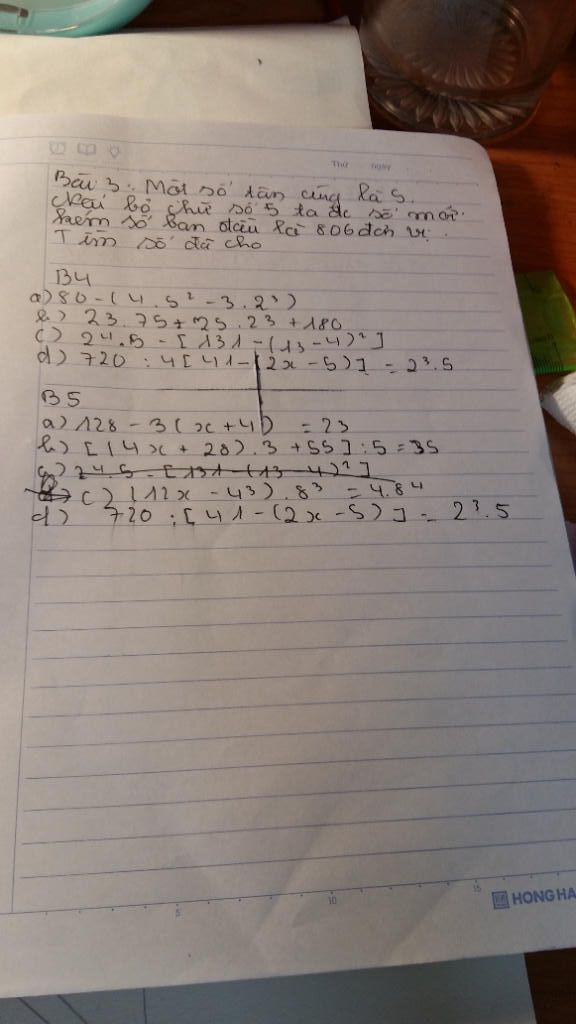 Thứ ngày
Bài 3: Một số tận cùng là 5.
Nếu bỏ chữ số 5 ta đc số mới
kém số ban đầu là 806 đơn vị.
Tìm số đã cho
B4
a) 80 - (4.5² - 3.2³)
b) 23.75 + 25.23 + 180
c) 24.5 - [131 - (13 - 4)²]
d) 720 : 4[41 - (2x - 5)] = 2³.5
B5
a) 128 - 3(x + 4) = 23
b) [(4x + 28).3 + 55] : 5 = 35
c) 24.5 - [131 - (13 - 4)²]
c) (12x - 43).8³ = 4.8⁴
d) 720 : [41 - (2x - 5)] = 2³.5
5 10 15
HONG HA